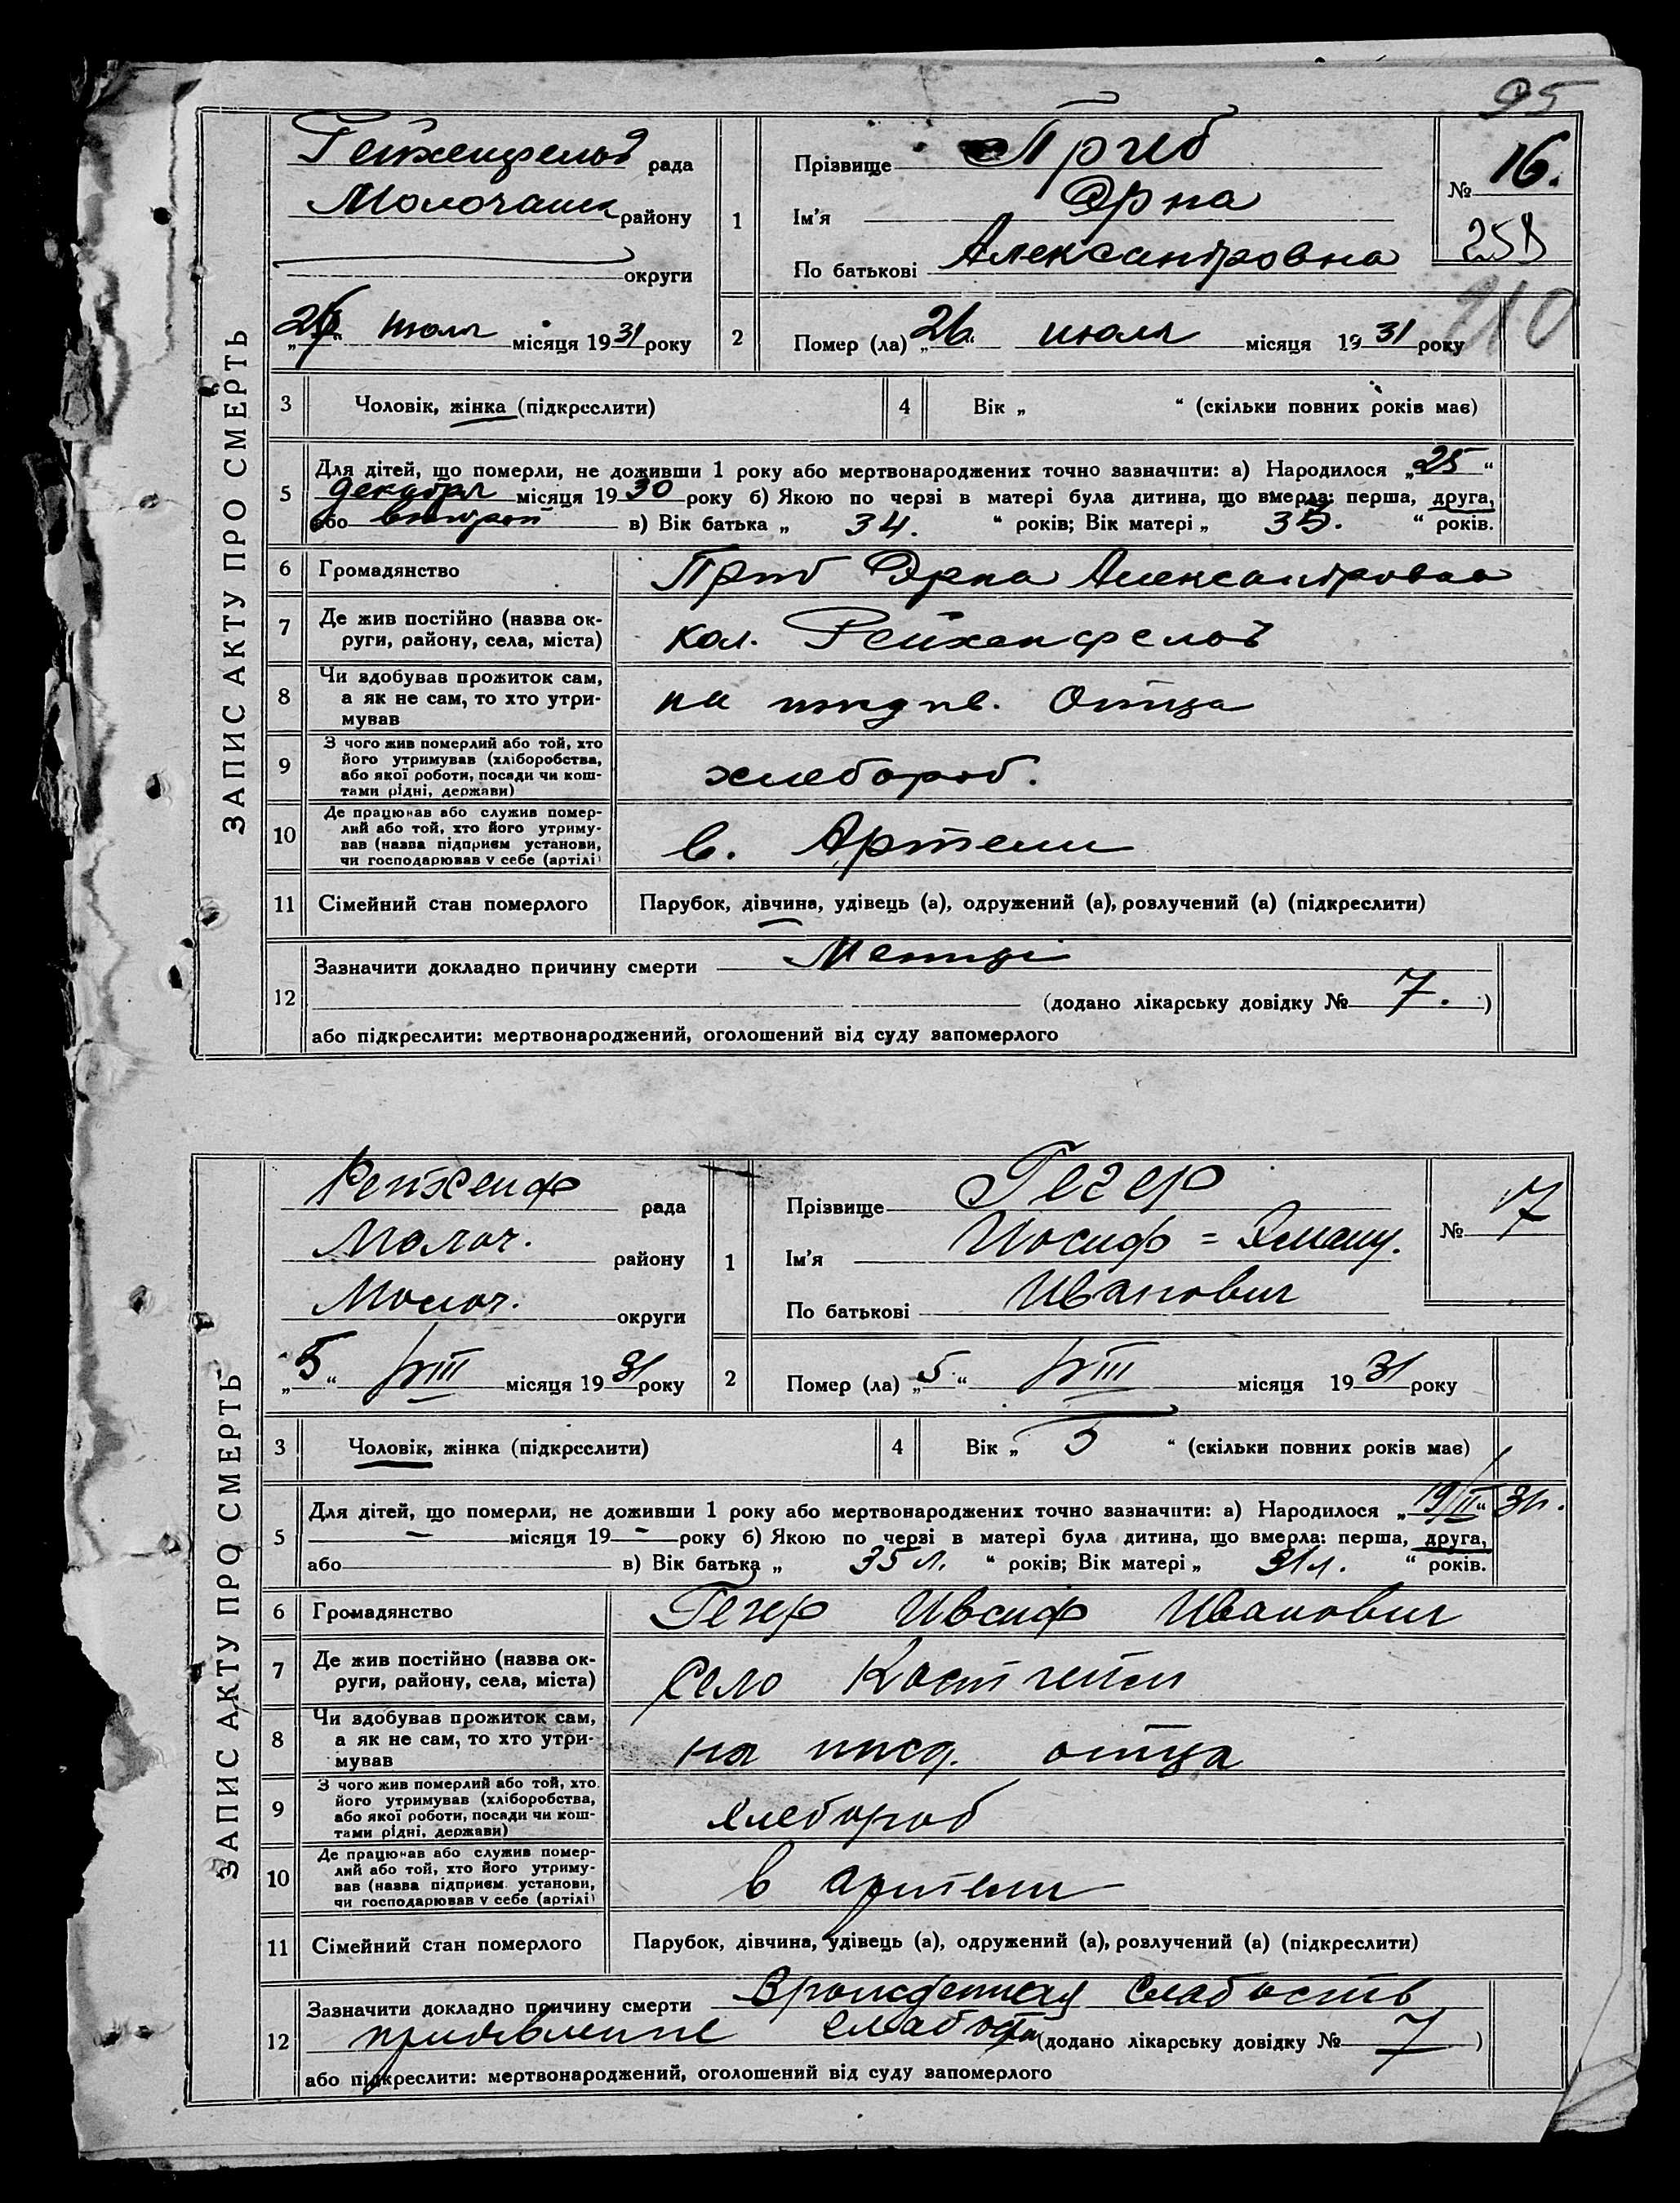 95
ЗАПИС АКТУ ПРО СМЕРТЬ
Рейхенфельд рада
Молочанск району
округи
„26“ июля місяця 1931 року
1
Прізвище Приб
Ім'я Эрна
По батькові Александровна
№ 16.
210
2
Помер (ла) „26“ июля місяця 1931 року
3 Чоловік, жінка (підкреслити)
4 Вік „ “ (скільки повних років має)
5
Для дітей, що померли, не доживши 1 року або мертвонароджених точно зазначити: а) Народилося „25“
декабря місяця 1930 року б) Якою по черзі в матері була дитина, що вмерла: перша, друга,
або второй в) Вік батька „ 34. “ років; Вік матері „ 35. “ років.
6 Громадянство Приб Эрна Александровна
7 Де жив постійно (назва ок-
руги, району, села, міста) кол. Рейхенфельд
8 Чи здобував прожиток сам,
а як не сам, то хто утри-
мував
на иждив. Отца
9 З чого жив померлий або той, хто
його утримував (хліборобства,
або якої роботи, посади чи кош-
тами рідні, держави)
хлебороб.
10 Де працював або служив помер-
лий або той, хто його утриму-
вав (назва підприєм установи,
чи господарював у себе (артілі)
в. Артели
11 Сімейний стан померлого Парубок, дівчина, удівець (а), одружений (а), розлучений (а) (підкреслити)
12
Зазначити докладно причину смерти
(додано лікарську довідку № 7.)
або підкреслити: мертвонароджений, оголошений від суду запомерлого
ЗАПИС АКТУ ПРО СМЕРТЬ
Рейхенф рада
Молоч. району
Молоч. округи
„5“ VIII місяця 1931 року
1
Прізвище Гегер
Ім'я Иосиф = Эману.
По батькові Иванович
№ 17
2
Помер (ла) „5“ VIII місяця 1931 року
3 Чоловік, жінка (підкреслити)
4 Вік „ 5 “ (скільки повних років має)
5
Для дітей, що померли, не доживши 1 року або мертвонароджених точно зазначити: а) Народилося „19/II“ 31г.
– місяця 19 – року б) Якою по черзі в матері була дитина, що вмерла: перша, друга,
або в) Вік батька „ 35 л. “ років; Вік матері „ 31 л. “ років.
6 Громадянство Гегер Иосиф Иванович
7 Де жив постійно (назва ок-
руги, району, села, міста) Село Костгейм
8 Чи здобував прожиток сам,
а як не сам, то хто утри-
мував
на ижд. отца
9 З чого жив померлий або той, хто
його утримував (хліборобства,
або якої роботи, посади чи кош-
тами рідні, держави)
хлебороб
10 Де працював або служив помер-
лий або той, хто його утриму-
вав (назва підприєм. установи,
чи господарював у себе (артілі)
в артели
11 Сімейний стан померлого Парубок, дівчина, удівець (а), одружений (а), розлучений (а) (підкреслити)
12
Зазначити докладно причину смерти Врожденная слабость
слабости (додано лікарську довідку № 7)
або підкреслити: мертвонароджений, оголошений від суду запомерлого